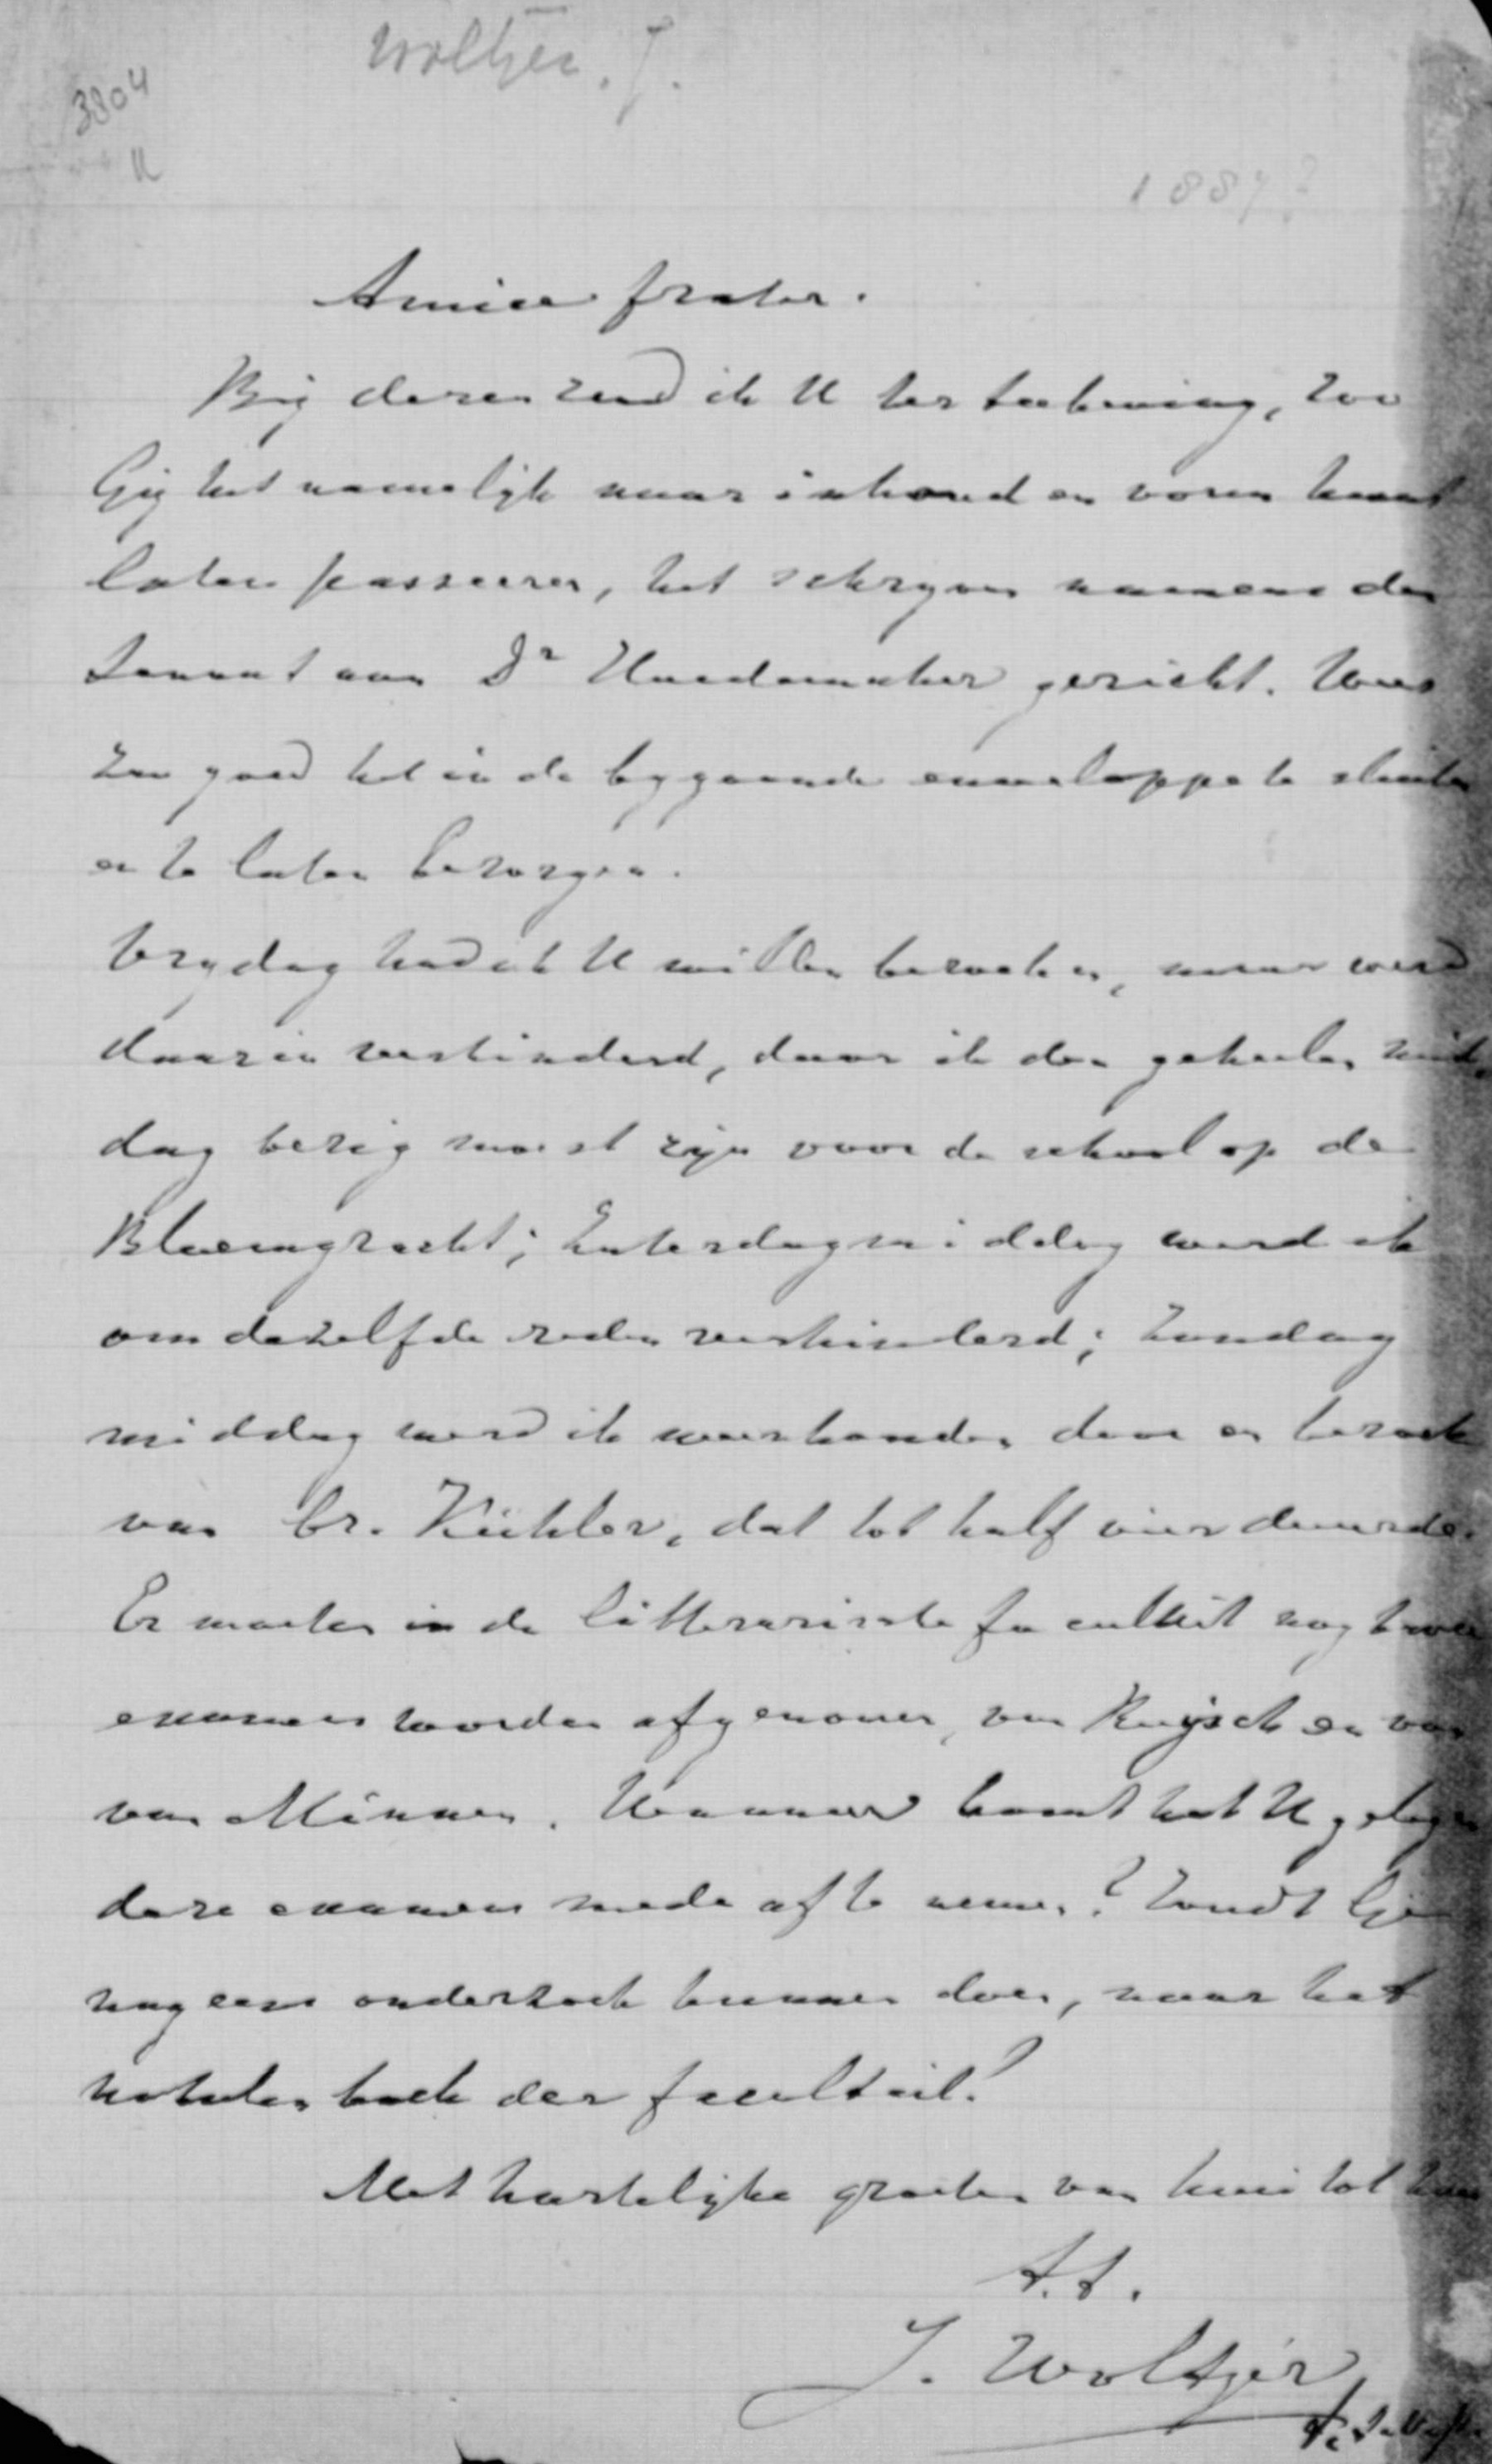 Woltjer. J.
3804
1887?
Amice frater.
Bij dezen zend ik U ter teekening, zoo
Gij het namelijk naar inhoud en vorm kunt
laten passeeren, het schryven namens den
Senaat aan Dr Hoedemaker gericht. Wees
zoo goed het in de bygaande enveloppe te sluiten
en te laten bezorgen.
Vrydag had ik U willen bezoeken, maar werd
daarin verhinderd, daar ik den geheelen mid-
dag bezig moest zijn voor de school op de
Bloemgracht; Zaterdagmiddag werd ik
om dezelfde reden verhinderd; Zondag
middag werd ik weerhouden door een bezoek
van br. Küchler, dat tot half vier duurde.
Er moeten in de litterarische faculteit nog twee
examens worden afgenomen, van Ruijsch en van
van Minnen. Wanneer komt het U gelegen
deze examens mede af te nemen? Zoudt Gij
nog eens onderzoek kunnen doen, naar het
notulenboek der faculteit?
Met hartelijke groeten van huis tot huis
t.t.
J. Woltjer